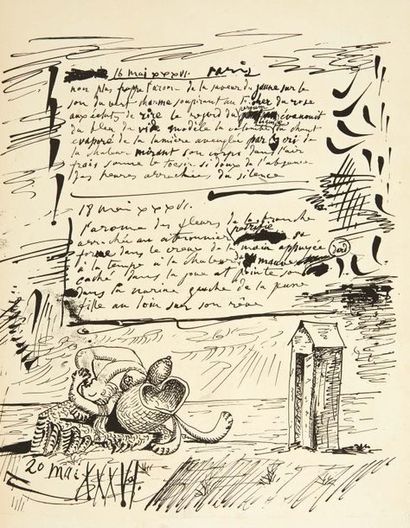 16 mai XXXVI. Paris
non plus frapper l'arome de la saveur du jaune sur le
son du vert charme soupirant au toucher du rose
aux éclats de rire le regard du parfum évanoui
du bleu du vide modèle la colonne du chant
évaporé de la lumière aveugle par le cri de
la chaleur mirant son corps dans l'air
frais sonne le
des heures arrachées du silence
18 mai XXXVI.
l'arome des fleurs de la branche
arrachée au
forme dans le creux de la main appuyée
à la tempe à la chaleur du mauve
caché dans la joue et pointe son
dans la narine gauche de la jeune
fille au loin sur son rêve
20 mai XXXVI.